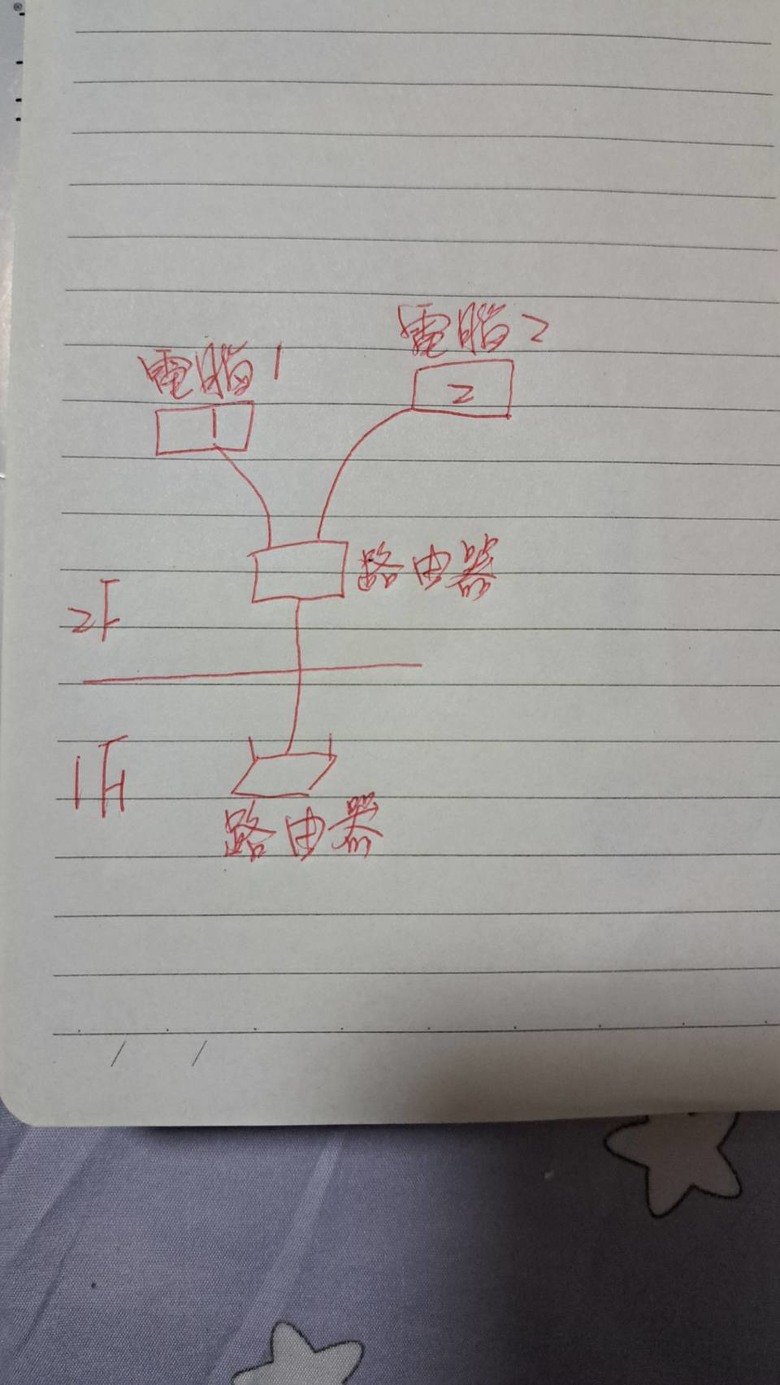 電腦2
電腦1
1
2
路由器
2F
1F
路由器